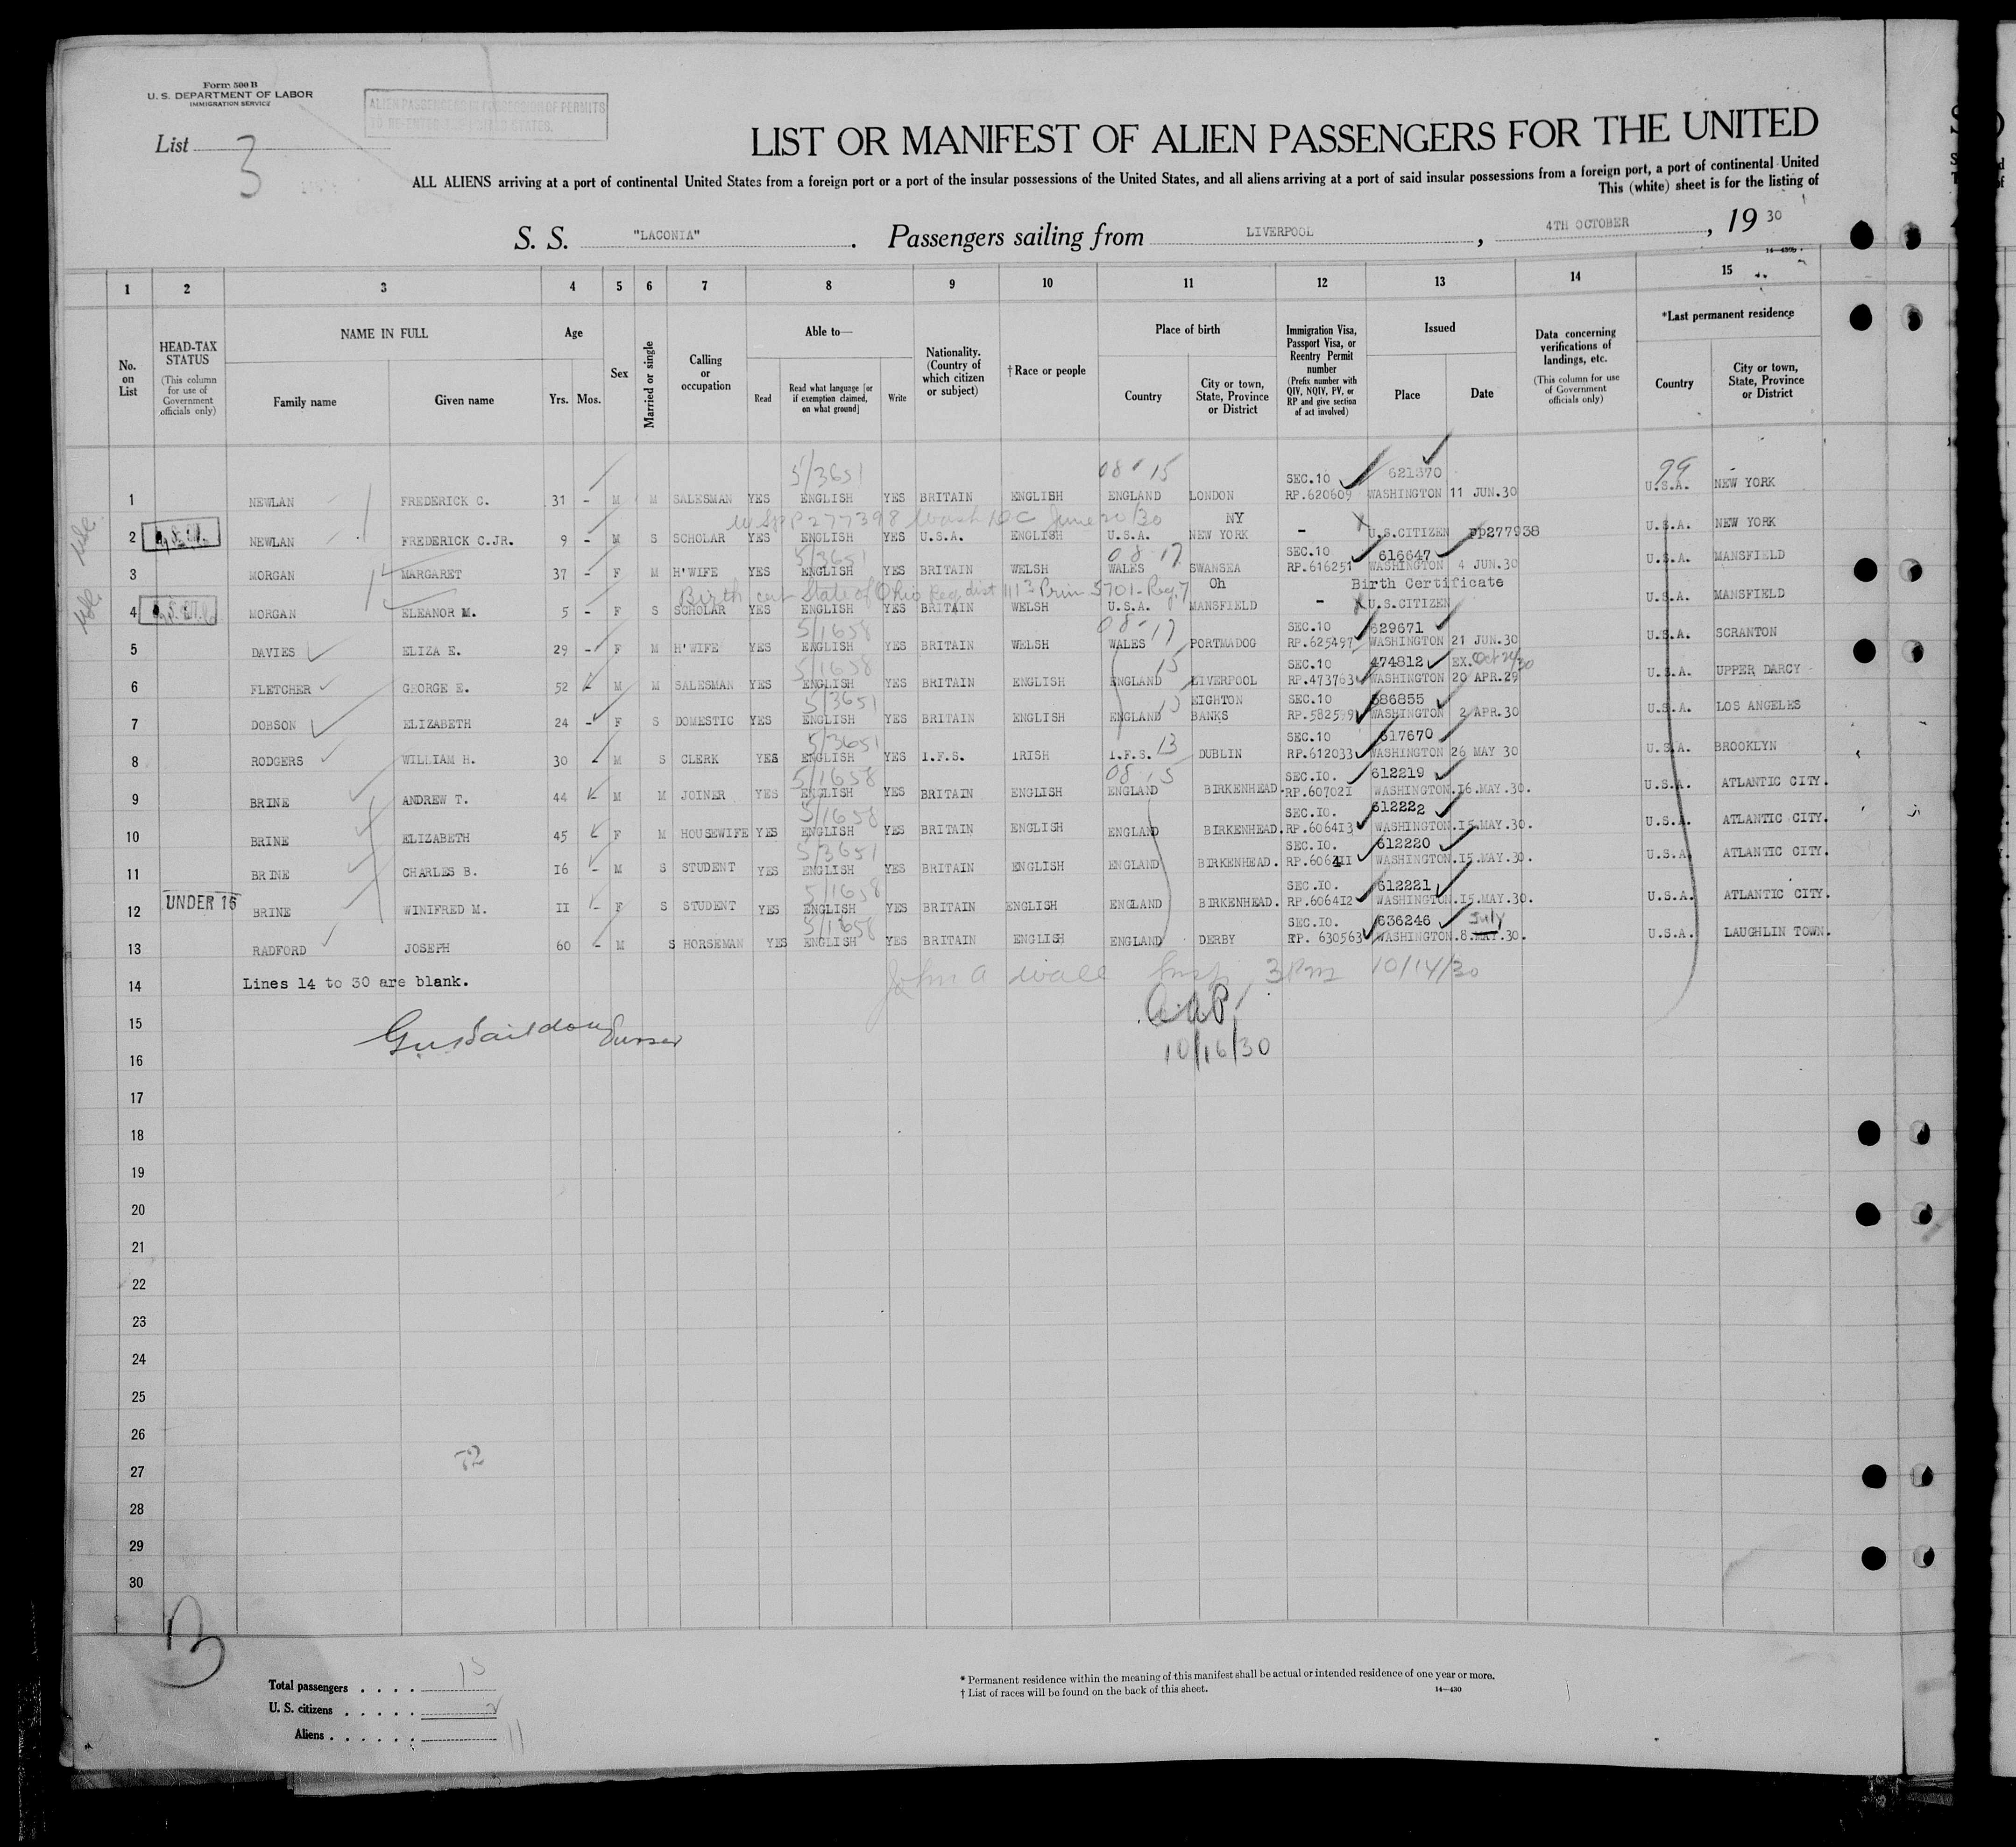 Form 500 B
U. S. DEPARTMENT OF LABOR
IMMIGRATION SERVICE
ALIEN PASSENGERS IN POSSESSION OF PERMITS
TO RE-ENTER UNITED STATES.
List 3
LIST OR MANIFEST OF ALIEN PASSENGERS FOR THE UNITED
ALL ALIENS arriving at a port of continental United States from a foreign port or a port of the insular possessions of the United States, and all aliens arriving at a port of said insular possessions from a foreign port, a port of continental United
This (white) sheet is for the listing of
S. S. "LACONIA". Passengers sailing from LIVERPOOL, 4TH OCTOBER, 19 30
1 2 3 4 5 6 7 8 9 10 11 12 13 14 15
No. on List
HEAD-TAX STATUS (This column for use of Government officials only)
NAME IN FULL
Family name Given name
Age
Yrs. Mos.
Sex
Married or single
Calling or occupation
Able to—
Read Read what language [or if exemption claimed, on what ground] Write
Nationality. (Country of which citizen or subject)
† Race or people
Place of birth
Country City or town, State, Province or District
Immigration Visa, Passport Visa, or Reentry Permit number (Prefix number with QIV, NQIV, PV, or RP and give section of act involved)
Issued
Place Date
Data concerning verifications of landings, etc. (This column for use of Government officials only)
*Last permanent residence
Country City or town, State, Province or District
5/3651 08-15 SEC.10 621370 99
1 NEWLAN FREDERICK C. 31 - M M SALESMAN YES ENGLISH YES BRITAIN ENGLISH ENGLAND LONDON RP.620609 WASHINGTON 11 JUN.30 U.S.A. NEW YORK
P 277398 Wash DC June 20/30 NY
2 NEWLAN FREDERICK C.JR. 9 - M S SCHOLAR YES ENGLISH YES U.S.A. ENGLISH U.S.A. NEW YORK - U.S.CITIZEN pp277938 U.S.A. NEW YORK
5/3651 08-17 SEC.10 616647
3 MORGAN MARGARET 37 - F M H'WIFE YES ENGLISH YES BRITAIN WELSH WALES SWANSEA RP.616251 WASHINGTON 4 JUN.30 U.S.A. MANSFIELD
Birth cert State of Ohio Reg dist 1113 Prim 5701-Reg.7 Oh Birth Certificate
4 MORGAN ELEANOR M. 5 - F S SCHOLAR YES ENGLISH YES BRITAIN WELSH U.S.A. MANSFIELD - U.S.CITIZEN U.S.A. MANSFIELD
5/1658 08-17 SEC.10 629671
5 DAVIES ELIZA E. 29 - F M H'WIFE YES ENGLISH YES BRITAIN WELSH WALES PORTMADOG RP.625497 WASHINGTON 21 JUN.30 U.S.A. SCRANTON
5/1658 15 SEC.10 474812 EX. Oct 24/30
6 FLETCHER GEORGE E. 52 - M M SALESMAN YES ENGLISH YES BRITAIN ENGLISH ENGLAND LIVERPOOL RP.473763 WASHINGTON 20 APR.29 U.S.A. UPPER DARCY
5/3651 15 EIGHTON SEC.10 586855
7 DOBSON ELIZABETH 24 - F S DOMESTIC YES ENGLISH YES BRITAIN ENGLISH ENGLAND BANKS RP.582599 WASHINGTON 2 APR.30 U.S.A. LOS ANGELES
5/3651 13 SEC.10 617670
8 RODGERS WILLIAM H. 30 - M S CLERK YES ENGLISH YES I.F.S. IRISH I.F.S. DUBLIN RP.612033 WASHINGTON 26 MAY 30 U.S.A. BROOKLYN
5/1658 08-15 SEC.IO. 612219
9 BRINE ANDREW T. 44 - M M JOINER YES ENGLISH YES BRITAIN ENGLISH ENGLAND BIRKENHEAD. RP.60702I WASHINGTON.I6.MAY.30. U.S.A. ATLANTIC CITY.
5/1658 SEC.IO. 612222
10 BRINE ELIZABETH 45 - F M HOUSEWIFE YES ENGLISH YES BRITAIN ENGLISH ENGLAND BIRKENHEAD. RP.6064I3 WASHINGTON.I5.MAY.30. U.S.A. ATLANTIC CITY.
5/3651 SEC.IO. 612220
11 BRINE CHARLES B. I6 - M S STUDENT YES ENGLISH YES BRITAIN ENGLISH ENGLAND BIRKENHEAD. RP.6064II WASHINGTON.I5.MAY.30. U.S.A ATLANTIC CITY.
UNDER 16 5/1658 SEC.IO. 612221
12 BRINE WINIFRED M. II - F S STUDENT YES ENGLISH YES BRITAIN ENGLISH ENGLAND BIRKENHEAD. RP.6064I2 WASHINGTON.I5.MAY.30. U.S.A. ATLANTIC CITY.
5/1658 SEC.IO. 636246 July
13 RADFORD JOSEPH 60 - M S HORSEMAN YES ENGLISH YES BRITAIN ENGLISH ENGLAND DERBY RP. 630563 WASHINGTON.8.MAY.30. U.S.A. LAUGHLIN TOWN.
14 Lines 14 to 30 are blank. John A Wall Insp 3 PM 10/14/30
15
10/16/30
16
17
18
19
20
21
22
23
24
25
26
72
27
28
29
30
Total passengers . . . . 13
U. S. citizens . . . . . 2
Aliens . . . . . . 11
* Permanent residence within the meaning of this manifest shall be actual or intended residence of one year or more.
† List of races will be found on the back of this sheet. 14—430